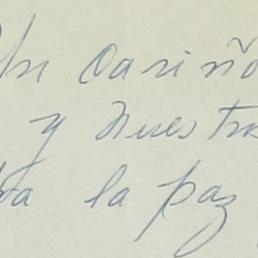 cariño
y nuestro
la paz